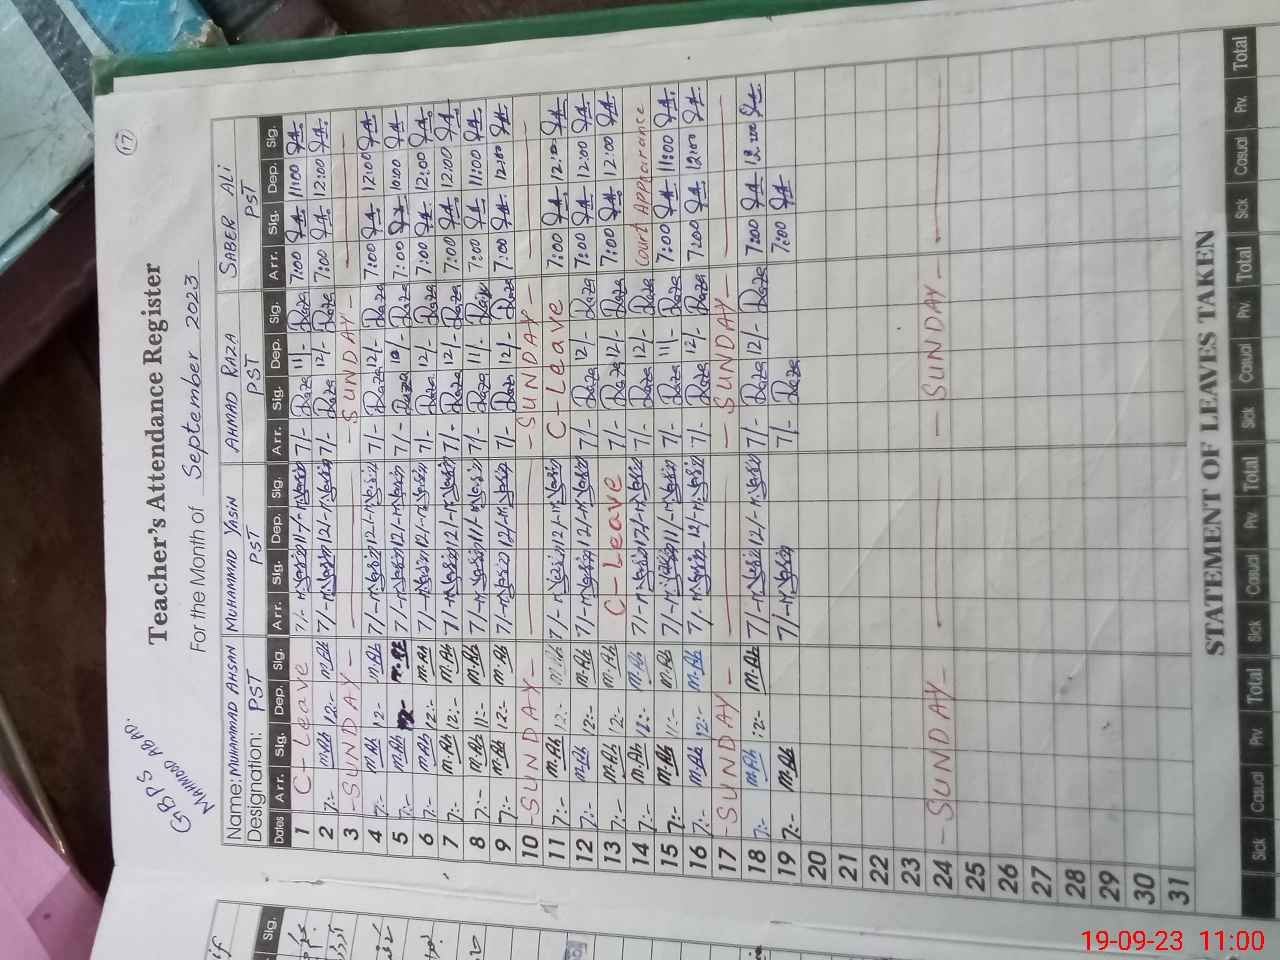 17
GBPS
MAHMOOD ABAD.
Teacher's Attendance Register
For the Month of September 2023
Name: MUHAMMAD AHSAN MUHAMMAD YASIN AHMAD RAZA SABER ALI
Designation: PST PST PST PST
Dates Arr. Sig. Dep. Sig. Arr. Sig. Dep. Sig. Arr. Sig. Dep. Sig. Arr. Sig. Dep. Sig.
1 C-Leave 7/- M.Yasin 11/- M.Yasin 7/- Raza 11/- Raza 7:00 11:00
2 7:- M.Ah 12:- M.Ah 7/- M.Yasin 12/- M.Yasin 7/- Raza 12/- Raza 7:00 12:00
3 -SUNDAY- -SUNDAY-
4 7:- M.Ah 12:- M.Ah 7/- M.Yasin 12/- M.Yasin 7/- Raza 12/- Raza 7:00 12:00
5 7:- M.Ah M.Ah 7/- M.Yasin 12/- M.Yasin 7/- Raza Raza 7:00 10:00
6 7:- M.Ah 12:- M.Ah 7/- M.Yasin 12/- M.Yasin 7/- Raza 12/- Raza 7:00 12:00
7 7:- M.Ah 12:- M.Ah 7/- M.Yasin 12/- M.Yasin 7/- Raza 12/- Raza 7:00 12:00
8 7:- M.Ah 11:- M.Ah 7/- M.Yasin 11/- M.Yasin 7/- Raza 11/- Raza 7:00 11:00
9 7:- M.Ah 12:- M.Ah 7/- M.Yasin 12/- M.Yasin 7/- Raza 12/- Raza 7:00 12:00
10 -SUNDAY- -SUNDAY-
11 7:- M.Ah 12:- M.Ah 7/- M.Yasin 12/- M.Yasin C-Leave 7:00 12:00
12 7:- M.Ah 12:- M.Ah 7/- M.Yasin 12/- M.Yasin 7/- Raza 12/- Raza 7:00 12:00
13 7:- M.Ah 12:- M.Ah C-Leave 7/- Raza 12/- Raza 7:00 12:00
14 7:- M.Ah 12:- M.Ah 7/- M.Yasin 12/- M.Yasin 7/- Raza 12/- Raza Court Apparance
15 7:- M.Ah 11:- M.Ah 7/- M.Yasin 11/- M.Yasin 7/- Raza 11/- Raza 7:00 11:00
16 7:- M.Ah 12:- M.Ah 7/- M.Yasin 12/- M.Yasin 7/- Raza 12/- Raza 7:00 12:00
17 -SUNDAY- -SUNDAY-
18 7:- M.Ah 12:- M.Ah 7/- M.Yasin 12/- M.Yasin 7/- Raza 12/- Raza 7:00 12:00
19 7:- M.Ah 7/- M.Yasin 7/- Raza 7:00
20
21
22
23
24 -SUNDAY- -SUNDAY-
25
26
27
28
29
30
31
STATEMENT OF LEAVES TAKEN
Sick Casual Prv. Total Sick Casual Prv. Total Sick Casual Prv. Total Sick Casual Prv. Total
if
Sig.
19-09-23 11:00